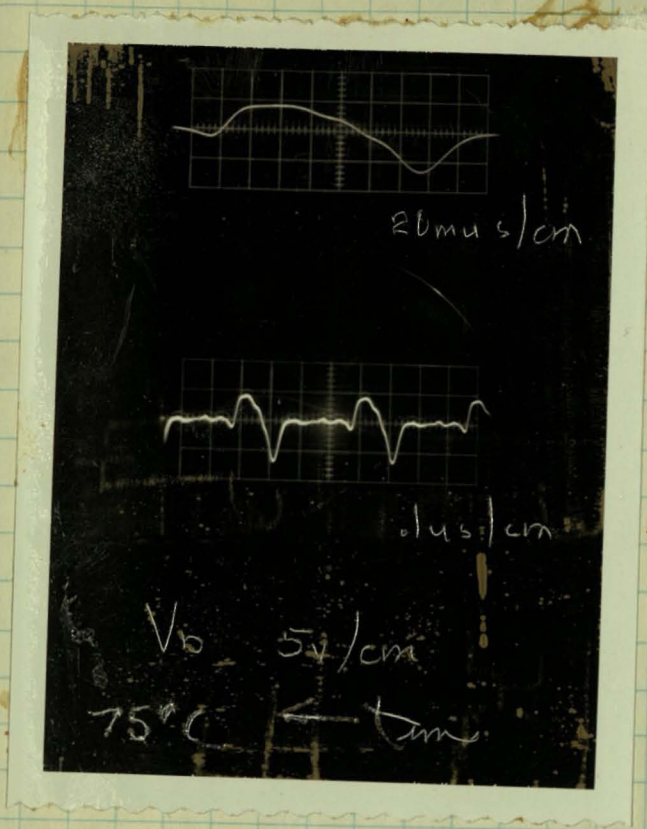 20mus/cm
.1us/cm
Vb 5v/cm
75°C ←